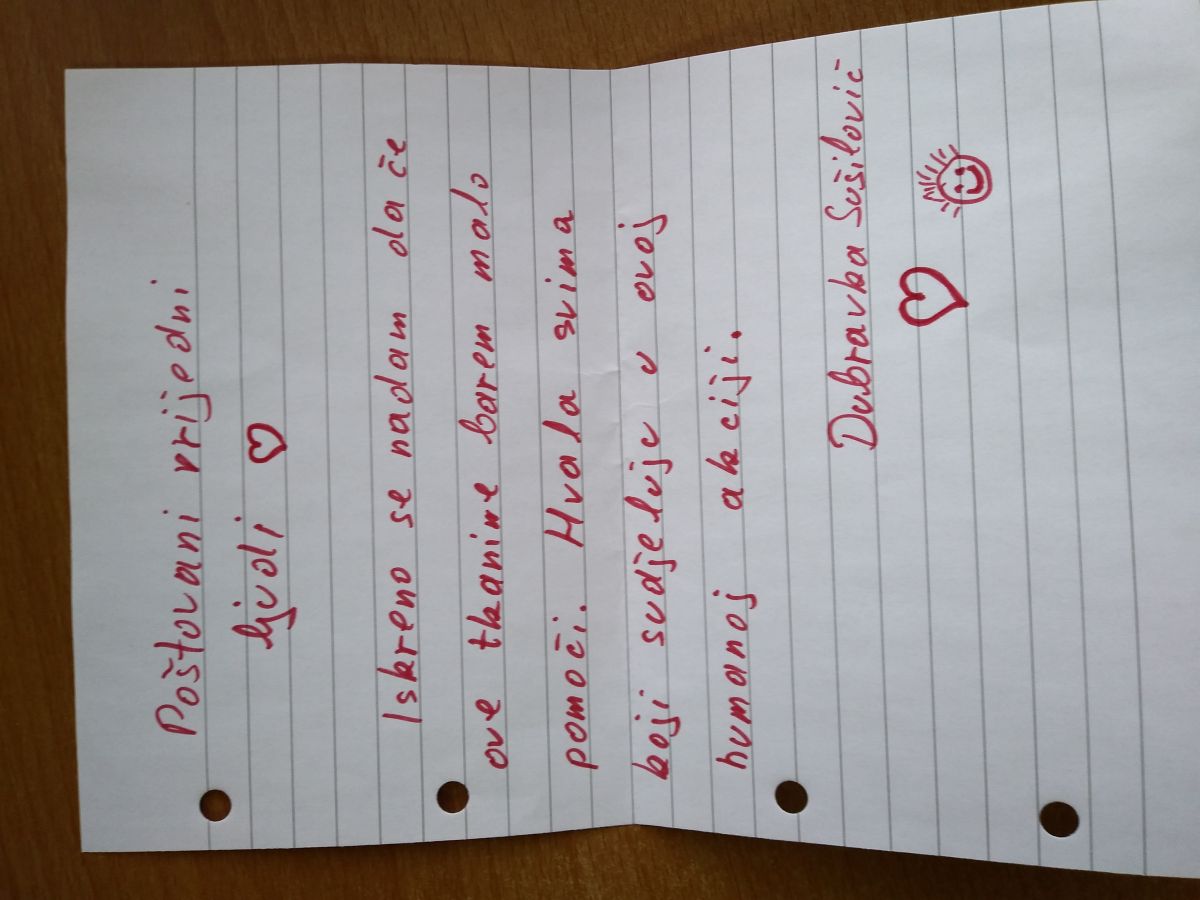 Poštovani vrijedni
ljudi
Iskreno se nadam da će
ove tkanine barem malo
pomoći. Hvala svima
koji sudjeluju u ovoj
humanoj akciji.
Dubravka Sušilović